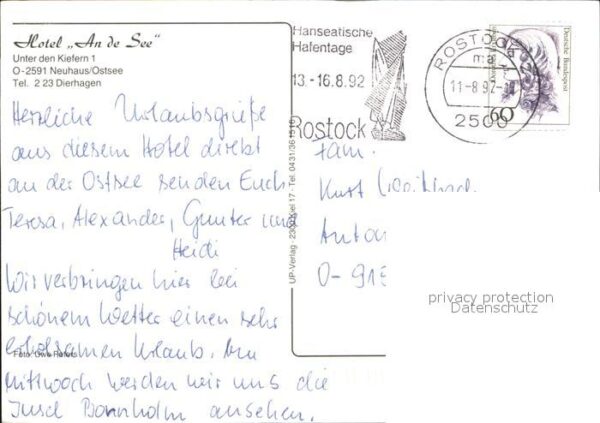 Hotel „An de See“
Unter den Kiefern 1
O-2591 Neuhaus/Ostsee
Tel. 2 23 Dierhagen
Herzliche Urlaubsgrüße
aus diesem Hotel direkt
an der Ostsee senden Euch
Teresa, Alexander, Gunter und
Heidi
Wir verbringen hier bei
schönem Wetter einen sehr
erholsamen Urlaub. Am
Mittwoch werden wir uns die
Insel Bornholm ansehen.
Foto: Uwe Peters
UP-Verlag · 2300 Kiel 17 · Tel. 0431/36
Hanseatische
Hafentage
13.-16.8.92
Rostock
ROSTOCK
ma
11-8.92
2500
Deutsche Bundespost
60
Fam.
Kurt
Anton
O-
privacy protection
Datenschutz